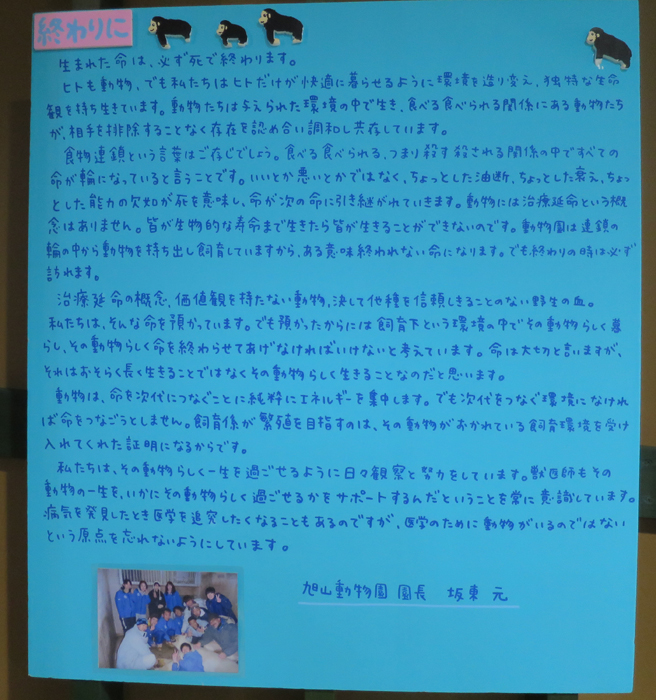 終わりに
生まれた命は、必ず死で終わります。
ヒトも動物、でも私たちはヒトだけが快適に暮らせるように環境を造り変え、独特な生命
観を持ち生きています。動物たちは与えられた環境の中で生き、食べる食べられる関係にある動物たち
が、相手を排除することなく存在を認め合い調和し共存しています。
食物連鎖という言葉はご存じでしょう。食べる食べられる、つまり殺す殺される関係の中ですべての
命が輪になっていると言うことです。いいとか悪いとかではなく、ちょっとした油断、ちょっとした衰え、ちょっ
とした能力の欠如が死を意味し、命が次の命に引き継がれていきます。動物には治療延命という概
念はありません。皆が生物的な寿命まで生きたら皆が生きることができないのです。動物園は連鎖の
輪の中から動物を持ち出し飼育していますから、ある意味終われない命になります。でも終わりの時は必ず
訪れます。
治療延命の概念、価値観を持たない動物、決して他種を信頼しきることのない野生の血。
私たちは、そんな命を預かっています。でも預かったからには飼育下という環境の中でその動物らしく暮
らし、その動物らしく命を終わらせてあげなければいけないと考えています。命は大切と言いますが、
それはおそらく長く生きることではなくその動物らしく生きることなのだと思います。
動物は、命を次代につなぐことに純粋にエネルギーを集中します。でも次代をつなぐ環境になけれ
ば命をつなごうとしません。飼育係が繁殖を目指すのは、その動物がおかれている飼育環境を受け
入れてくれた証明になるからです。
私たちは、その動物らしく一生を過ごせるように日々観察と努力をしています。獣医師もその
動物の一生を、いかにその動物らしく過ごせるかをサポートするんだということを常に意識しています。
病気を発見したとき医学を追究したくなることもあるのですが、医学のために動物がいるのではない
という原点を忘れないようにしています。
旭山動物園 園長 坂東 元